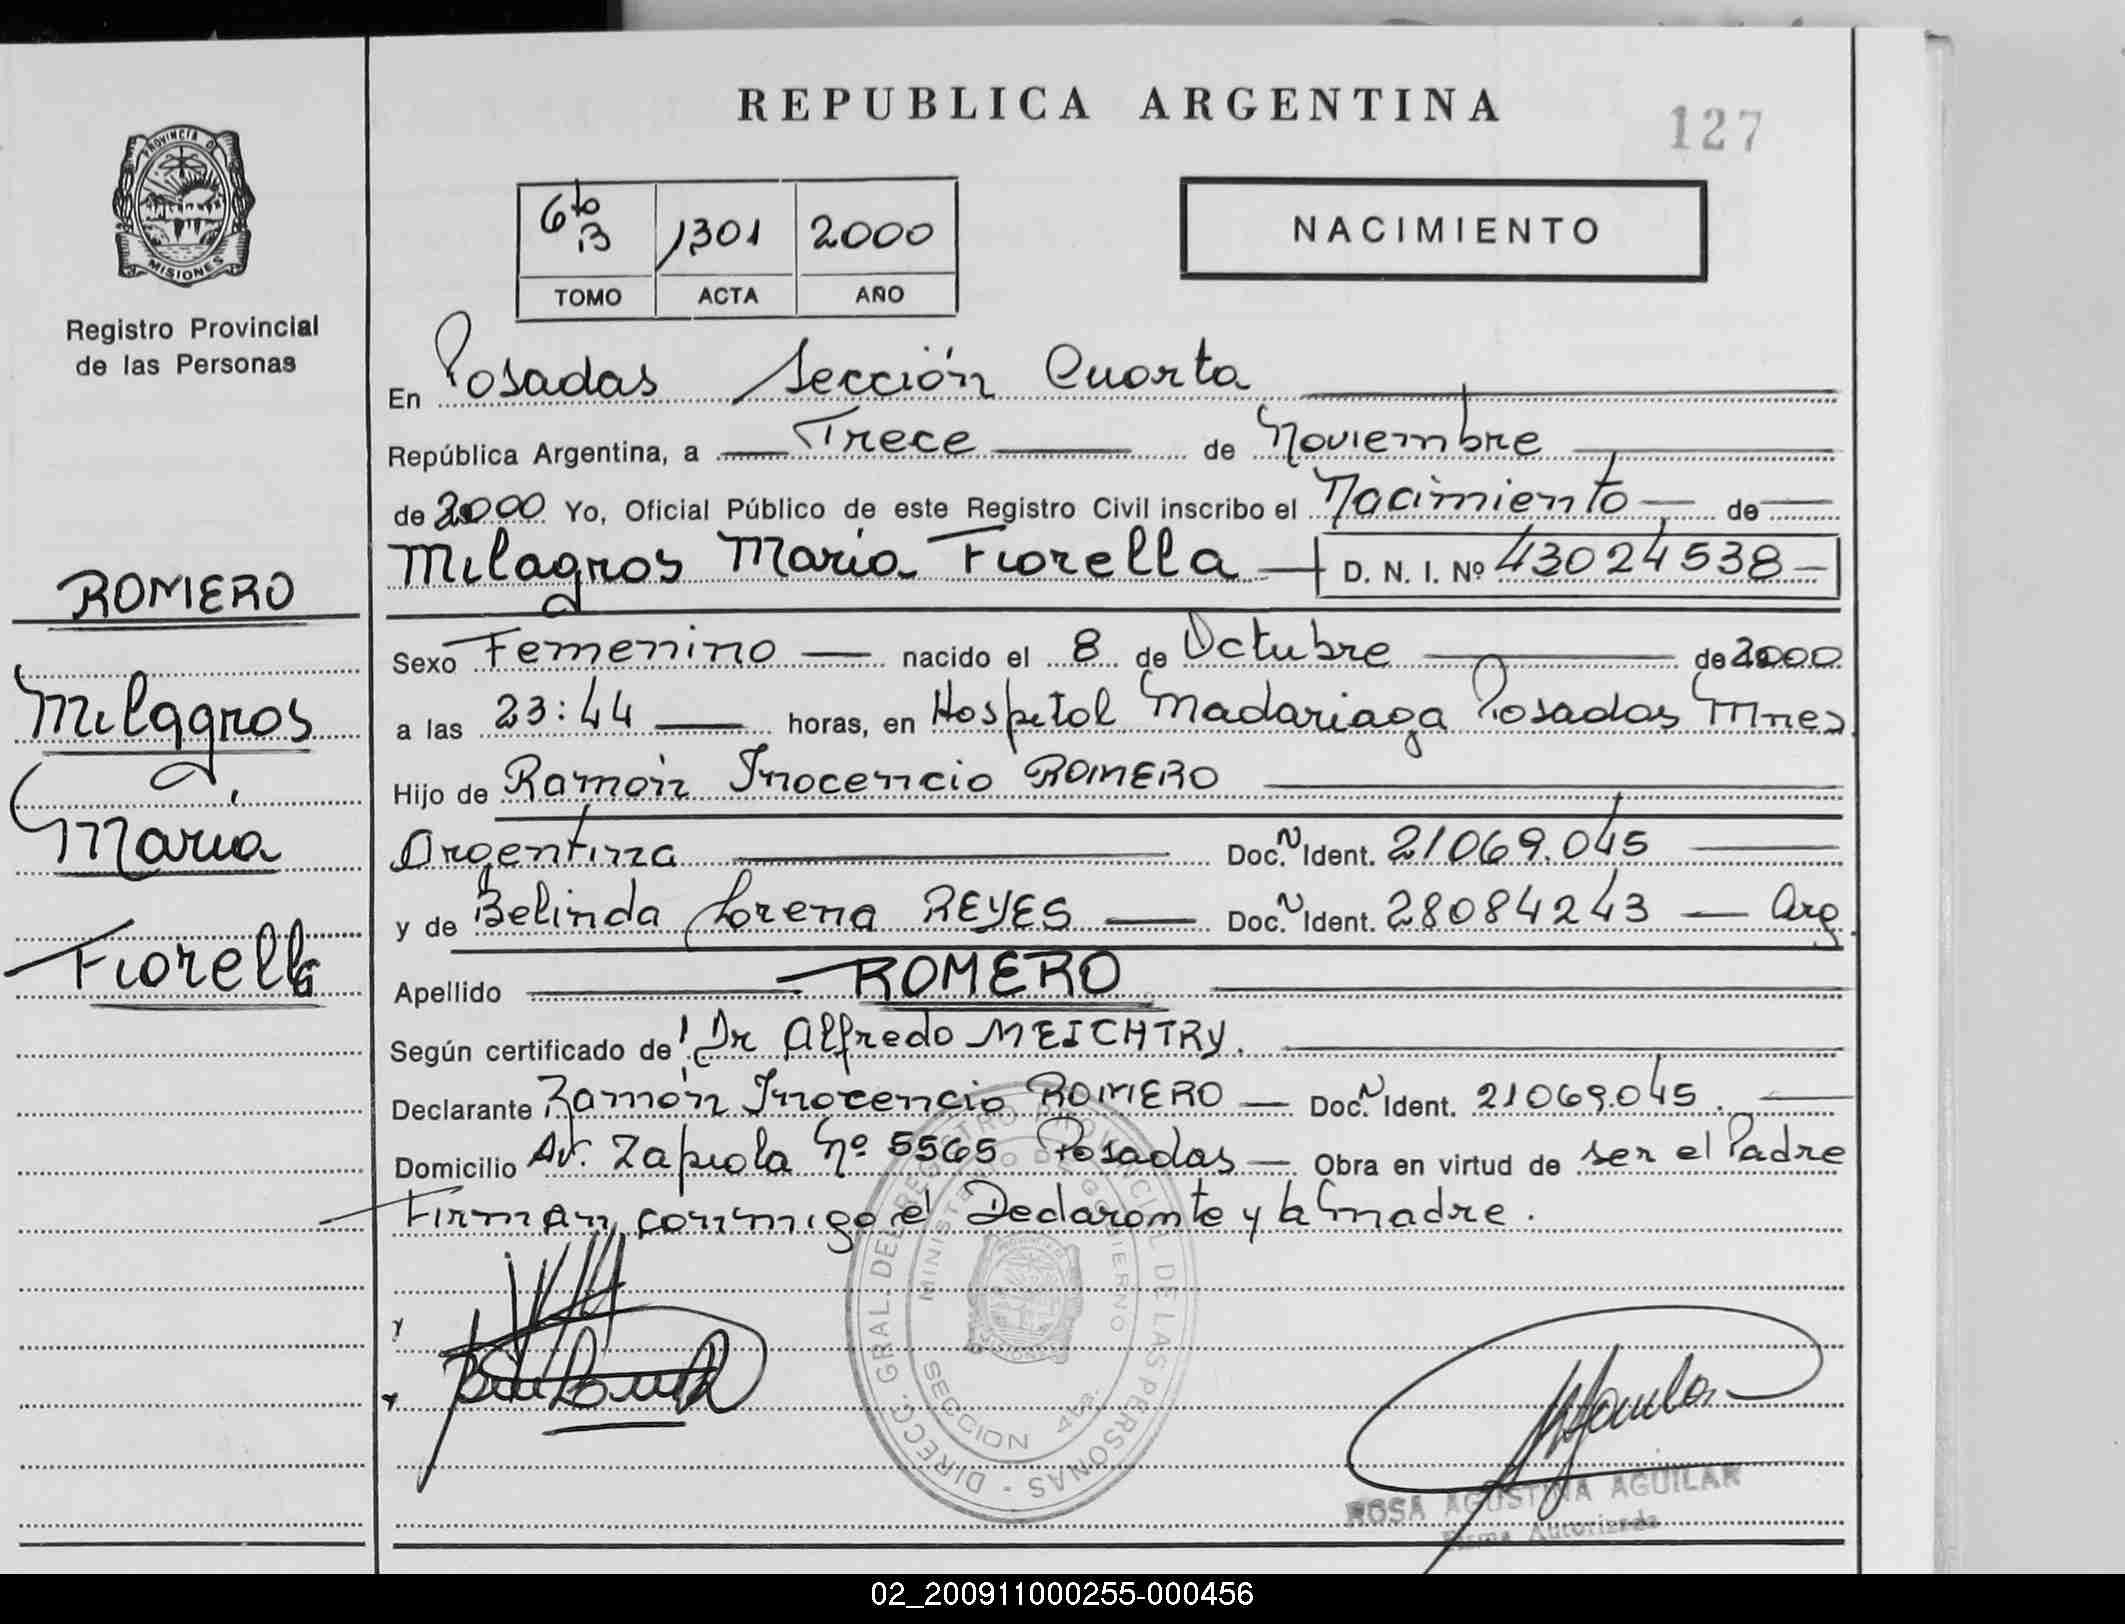 REPUBLICA ARGENTINA
127
PROVINCIA DE
MISIONES
Registro Provincial
de las Personas
6to B 1301 2000
TOMO ACTA AÑO
NACIMIENTO
En Posadas Sección Cuarta
República Argentina, a Trece de Noviembre
de 2000 Yo, Oficial Público de este Registro Civil inscribo el Nacimiento de
Milagros María Fiorella D. N. I. Nº 43024538
ROMERO
Milagros
María
Fiorella
Sexo Femenino nacido el 8 de Octubre de 2000
a las 23:44 horas, en Hospital Madariaga Posadas Mnes
Hijo de Ramón Inocencio ROMERO
Argentina Doc. N Ident. 21069.045
y de Belinda Lorena REYES Doc. N Ident. 28084243 Arg
Apellido ROMERO
Según certificado de Dr Alfredo MEICHTRY.
Declarante Ramón Inocencio ROMERO Doc. N Ident. 21069.045.
Domicilio Av. Zapiola Nº 5565 Posadas Obra en virtud de ser el Padre
Firman conmigo el Declarante y la Madre.
y
DIRECC. GRAL. DEL REGISTRO PROVINCIAL DE LAS PERSONAS
MINISTERIO DE GOBIERNO
MISIONES
SECCION 4ta.
ROSA AGUSTINA AGUILAR
Firma Autorizada
02_200911000255-000456